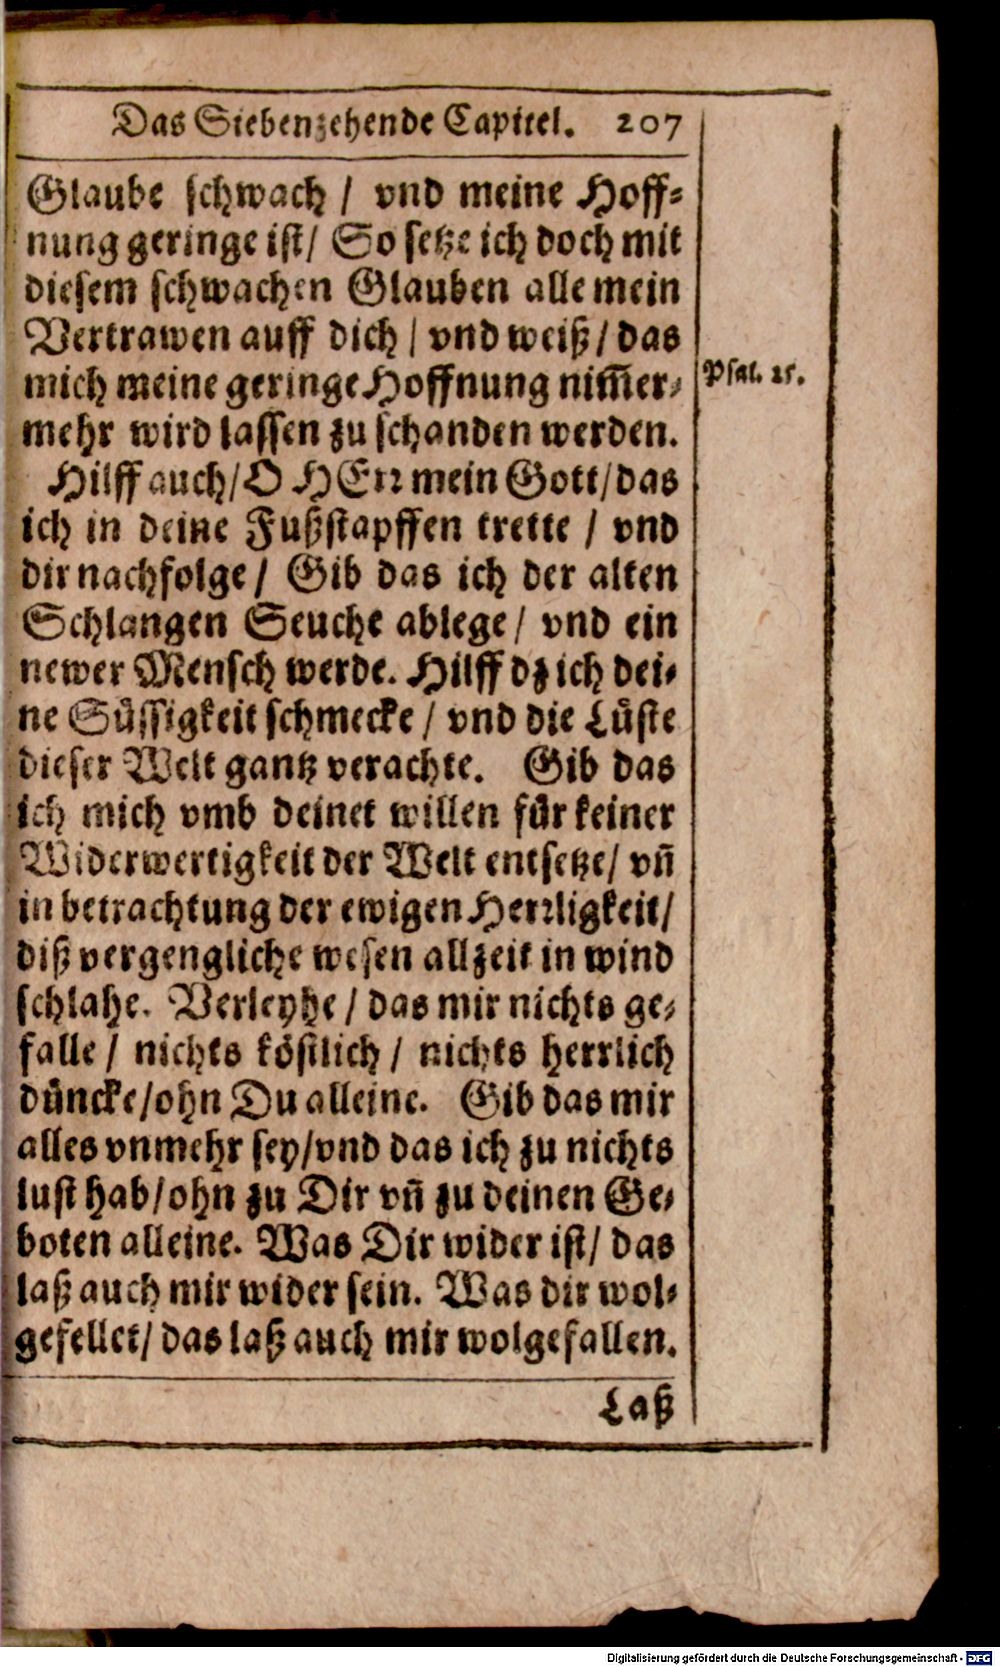 Das Siebenzehende Capitel. 207
Glaube schwach / vnd meine Hoff-
nung geringe ist / So setze ich doch mit
diesem schwachen Glauben alle mein
Vertrawen auff dich / vnd weiß / das
mich meine geringe Hoffnung nim̃er-
Psal. 25.
mehr wird lassen zu schanden werden.
Hilff auch / O HErr mein Gott / das
ich in deine Fußstapffen trette / vnd
dir nachfolge / Gib das ich der alten
Schlangen Seuche ablege / vnd ein
newer Mensch werde. Hilff dz ich dei-
ne Süssigkeit schmecke / vnd die Lüste
dieser Welt gantz verachte. Gib das
ich mich vmb deinet willen für keiner
Widerwertigkeit der Welt entsetze / vn̄
in betrachtung der ewigen Herrligkeit /
diß vergengliche wesen allzeit in wind
schlahe. Verleyhe / das mir nichts ge-
falle / nichts köstlich / nichts herrlich
düncke / ohn Du alleine. Gib das mir
alles vnmehr sey / vnd das ich zu nichts
lust hab / ohn zu Dir vn̄ zu deinen Ge-
boten alleine. Was Dir wider ist / das
laß auch mir wider sein. Was dir wol-
gefellet / das laß auch mir wolgefallen.
Laß
Digitalisierung gefördert durch die Deutsche Forschungsgemeinschaft - DFG